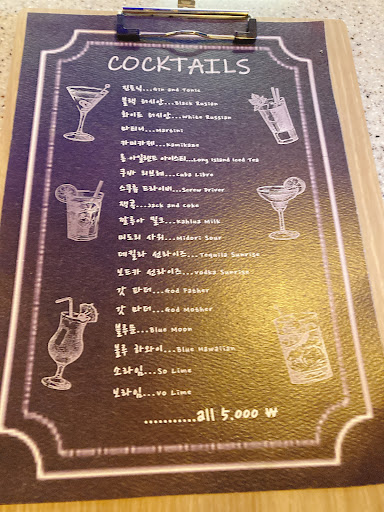 COCKTAILS
진토닉...Gin and Tonic
블랙 러시안...Black Rusian
화이트 러시안...White Russian
마티니...Martini
카미카제...Kamikaze
롱 아일랜드 아이스티...Long Island Iced Tea
쿠바 리브레...Cuba Libre
스쿠류 드라이버...Screw Driver
잭콕...Jack and coke
깔루아 밀크...Kahlua Milk
미도리 사워...Midori Sour
데킬라 선라이즈...Tequila Sunrise
보드카 선라이즈...Vodka Sunrise
갓 파더...God Father
갓 마더...God Mother
블루문...Blue Moon
블루 하와이...Blue Hawaiian
소라임...So Lime
보라임...Vo Lime
...........all 5,000 ₩